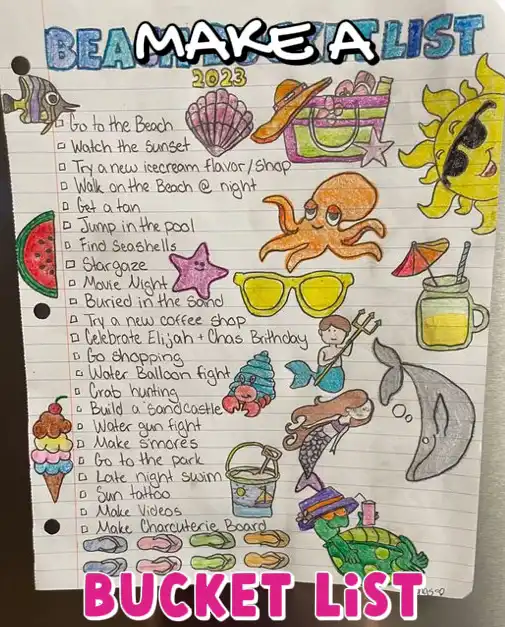 MAKE A
BEA LIST
2023
Go to the Beach
Watch the sunset
Try a new icecream flavor/shop
Walk on the Beach @ night
Get a tan
Jump in the pool
Find seashells
Stargaze
Movie Night
Buried in the sand
Try a new coffee shop
Celebrate Elijah + Chas Brithday
Go shopping
Water Balloon fight
Crab hunting
Build a sandcastle
Water gun fight
Make s'mores
Go to the park
Late night swim
Sun tattoo
Make Videos
Make Charcuterie Board
BUCKET LiST